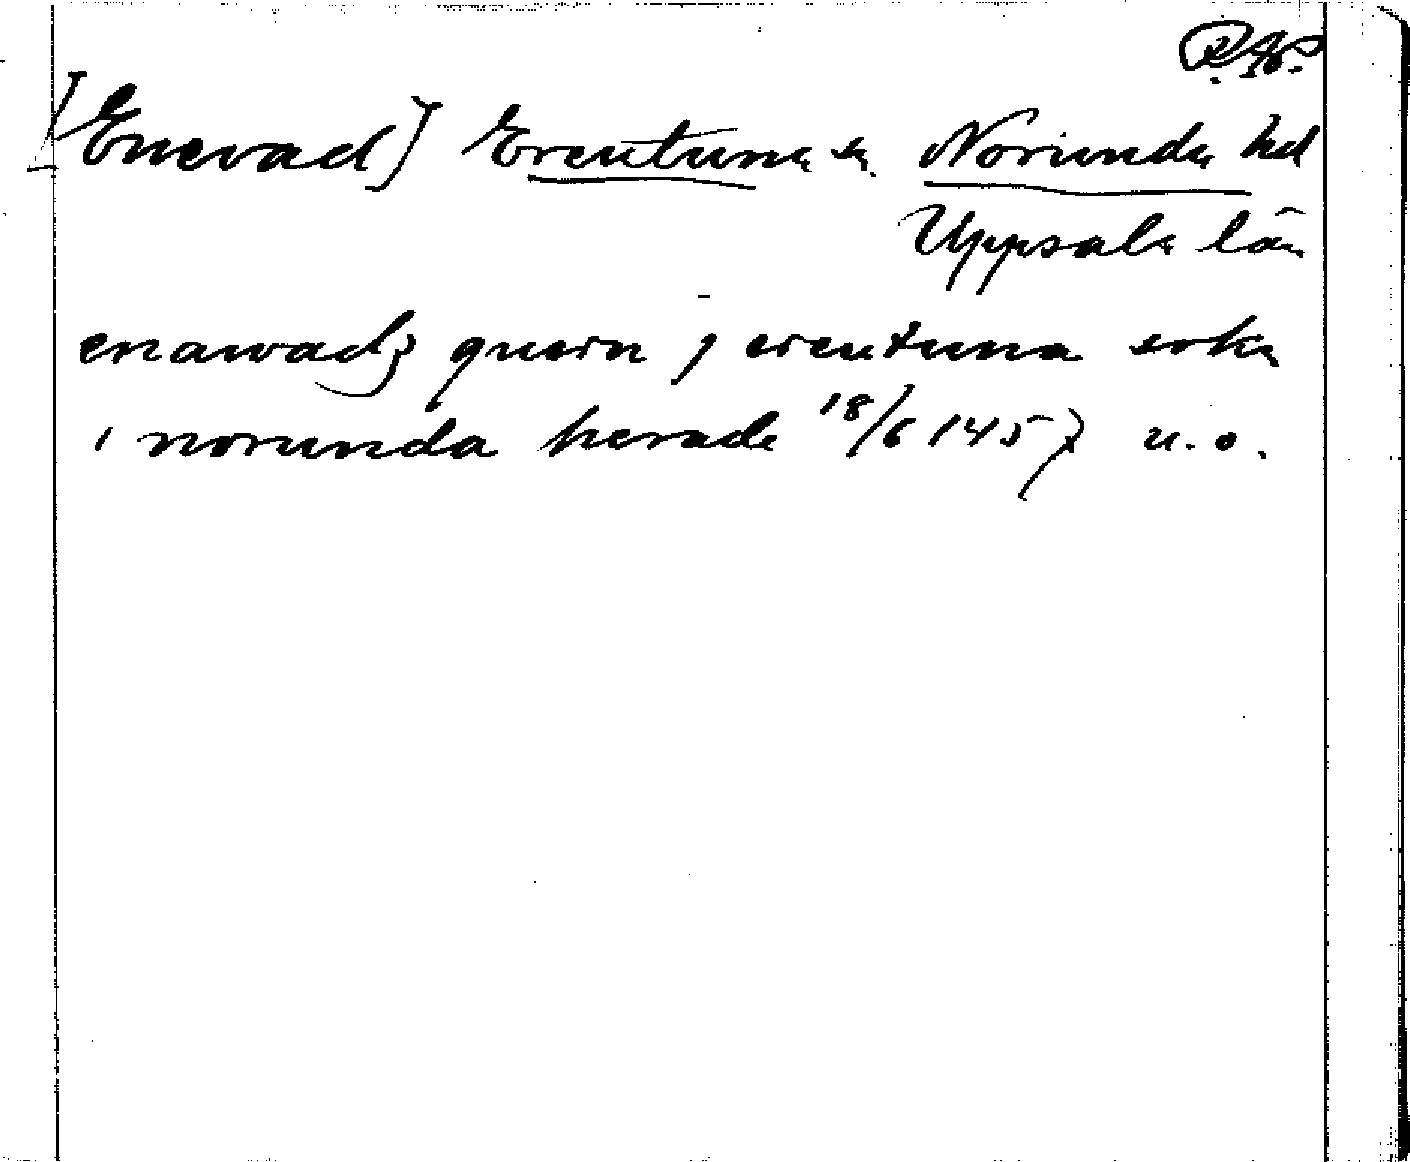 R.Ap.
[Enevad] Erentuna sn. Norunda hd
Uppsala län
enawadz quern j erentuna sokn
i norunda herade 18/6 1457 u.o.